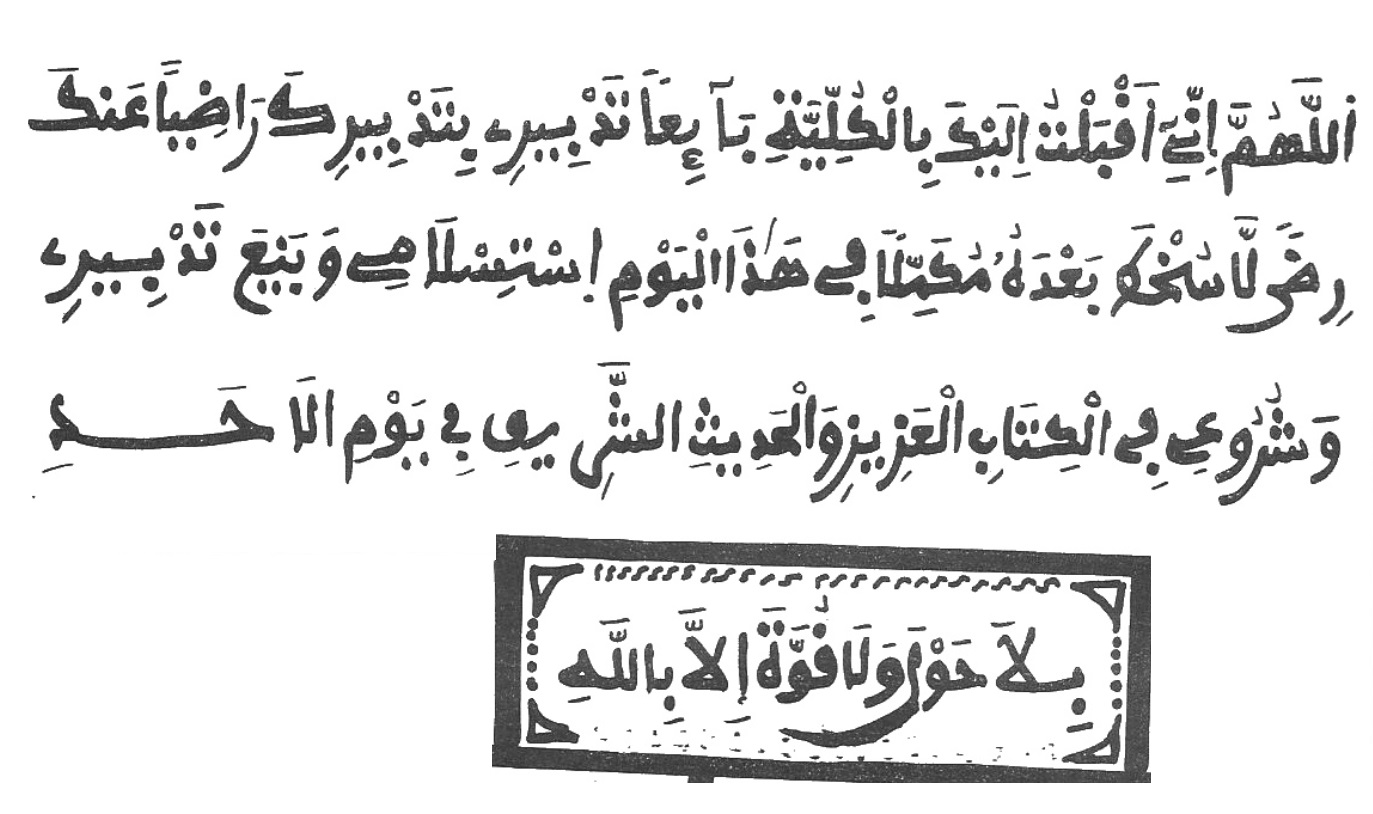 اَللَّهُمَّ إِنِّي أَقْبَلْتُ إِلَيْكَ بِالْكُلِّيَّةِ بَآئِعًا تَدْبِيرِي بِتَدْبِيرِكَ رَاضِيًا عَنكَ
رِضًى لَّا سُخْطَ بَعْدَهُ مُكَمِّلًا فِي هَٰذَا الْيَوْمِ اِسْتِسْلَامِي وَبَيْعَ تَدْبِيرِي
وَشُرُوعِي فِي الْكِتَابِ الْعَزِيزِ وَالْحَدِيثِ الشَّرِيفِ فِي يَوْمِ الَاحَدِ
بِلَا حَوْلَ وَلَا قُوَّةَ إِلَّا بِاللَّهِ